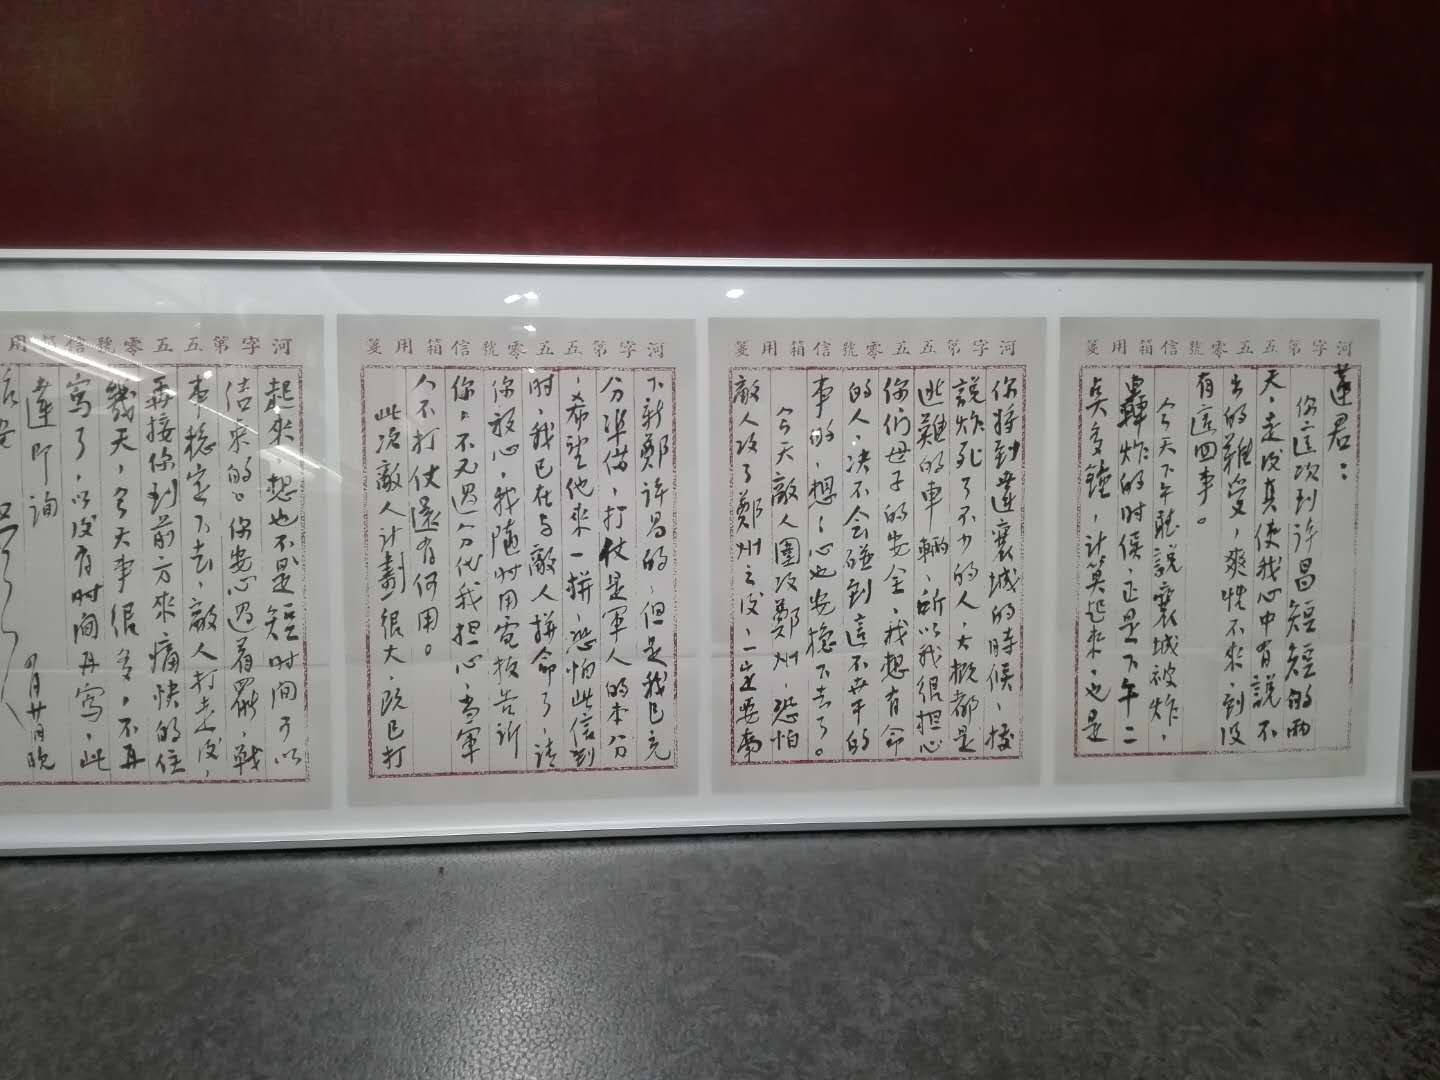 河字第五五零號信箱用箋
蓮君：
你這次到許昌短短的兩
天，走後真使我心中有說不
出的難受，爽快不來，到後
有這回事。
今天下午聽說襄城被炸，
轟炸的時候，正是下午二
点多鐘，計算起來，也是
河字第五五零號信箱用箋
你將到達襄城的時候，據
說炸死了不少的人，大概都是
逃難的車輛，所以我很担心
你們母子的安全，我想有命
的人，决不会碰到這不幸的
事的，想々心也安穩下去了。
今天敵人圍攻鄭州，恐怕
敵人攻了鄭州之後，一定要南
河字第五五零號信箱用箋
下新鄭許昌的，但是我已充
分準备，打仗是軍人的本分
，希望他來一拼，恐怕此信到
时，我已在与敵人拼命了，請
你放心，我随时用電报告訴
你，不允過分代我担心，当軍
人不打仗還有何用。
此次敵人計劃很大，既已打
河字第五五零號信箱用
起來，想也不是短时间可以
结束的。你安心過着罷，戰
事穩定下去，敵人打走後，
再接你到前方來痛快的住
幾天，今天事很多，不再
寫了，以後有时间再写，此
達即詢
安
月廿日晚